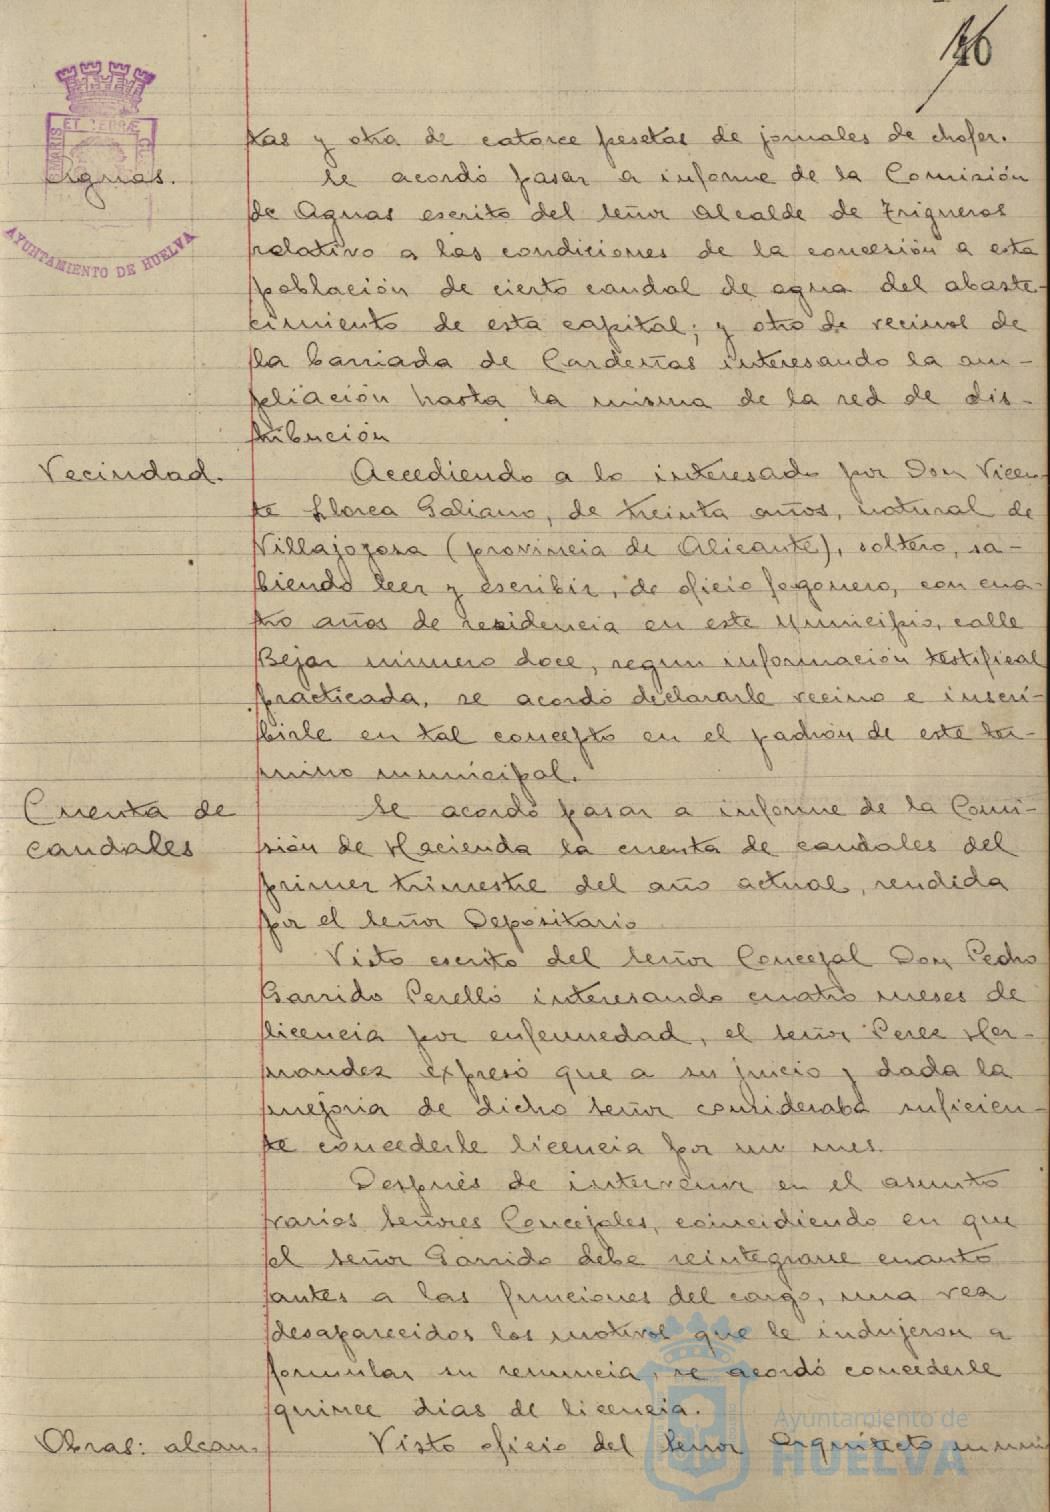 146
ET TERRÆ
AYUNTAMIENTO DE HUELVA
tas y otra de catorce pesetas de jornales de chofer.
Aguas.
Se acordó pasar a informe de la Comisión
de Aguas escrito del señor Alcalde de Trigueros
relativo a las condiciones de la concesión a esta
población de cierto caudal de agua del abaste-
cimiento de esta capital; y otro de vecinos de
la barriada de Cardeñas interesando la am-
pliación hasta la misma de la red de dis-
tribución
Vecindad.
Accediendo a lo interesado por Don Vicen-
te Llorca Galiano, de treinta años, natural de
Villajoyosa (provincia de Alicante), soltero, sa-
biendo leer y escribir, de oficio fogonero, con cua-
tro años de residencia en este Municipio, calle
Bejar número doce, segun información testifical
practicada, se acordó declararle vecino e inscri-
birle en tal concepto en el padrón de este tér-
mino municipal.
Cuenta de
caudales
Se acordó pasar a informe de la Comi-
sión de Hacienda la cuenta de caudales del
primer trimestre del año actual, rendida
por el Señor Depositario
Visto escrito del Señor Concejal Don Pedro
Garrido Perelló interesando cuatro meses de
licencia por enfermedad, el señor Perez Her-
nandez expresó que a su juicio y dada la
mejoria de dicho Señor consideraba suficien-
te concederle licencia por un mes.
Después de intervenir en el asunto
varios Señores Concejales, coincidiendo en que
el Señor Garrido debe reintegrarse cuanto
antes a las funciones del cargo, una vez
desaparecidos los motivos que le indujeron a
formular su renuncia, se acordó concederle
quince días de licencia.
Obras: alcan.
Visto oficio del Señor Arquitecto muni
Ayuntamiento de
HUELVA